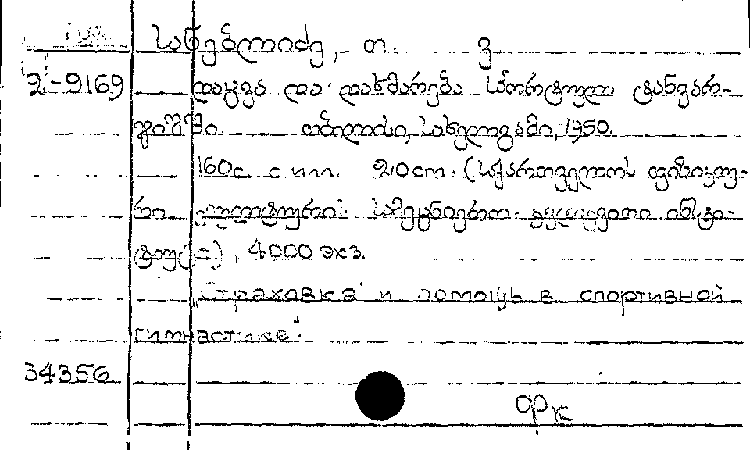 სანებლიძე, თ. ვ
2-9169 დაცვა და დახმარება სპორტულ ტანვარ-
ჯიშში. თბილისი, სახელგამი, 1950.
160с. с илл. 20cm. (საქართველოს ფიზიკუ-
რი კულტურის სამეცნიერო-კვლევითი ინსტი-
ტუტი), 4000 экз.
"Страховка и помощь в спортивной
гимнастике".
34356